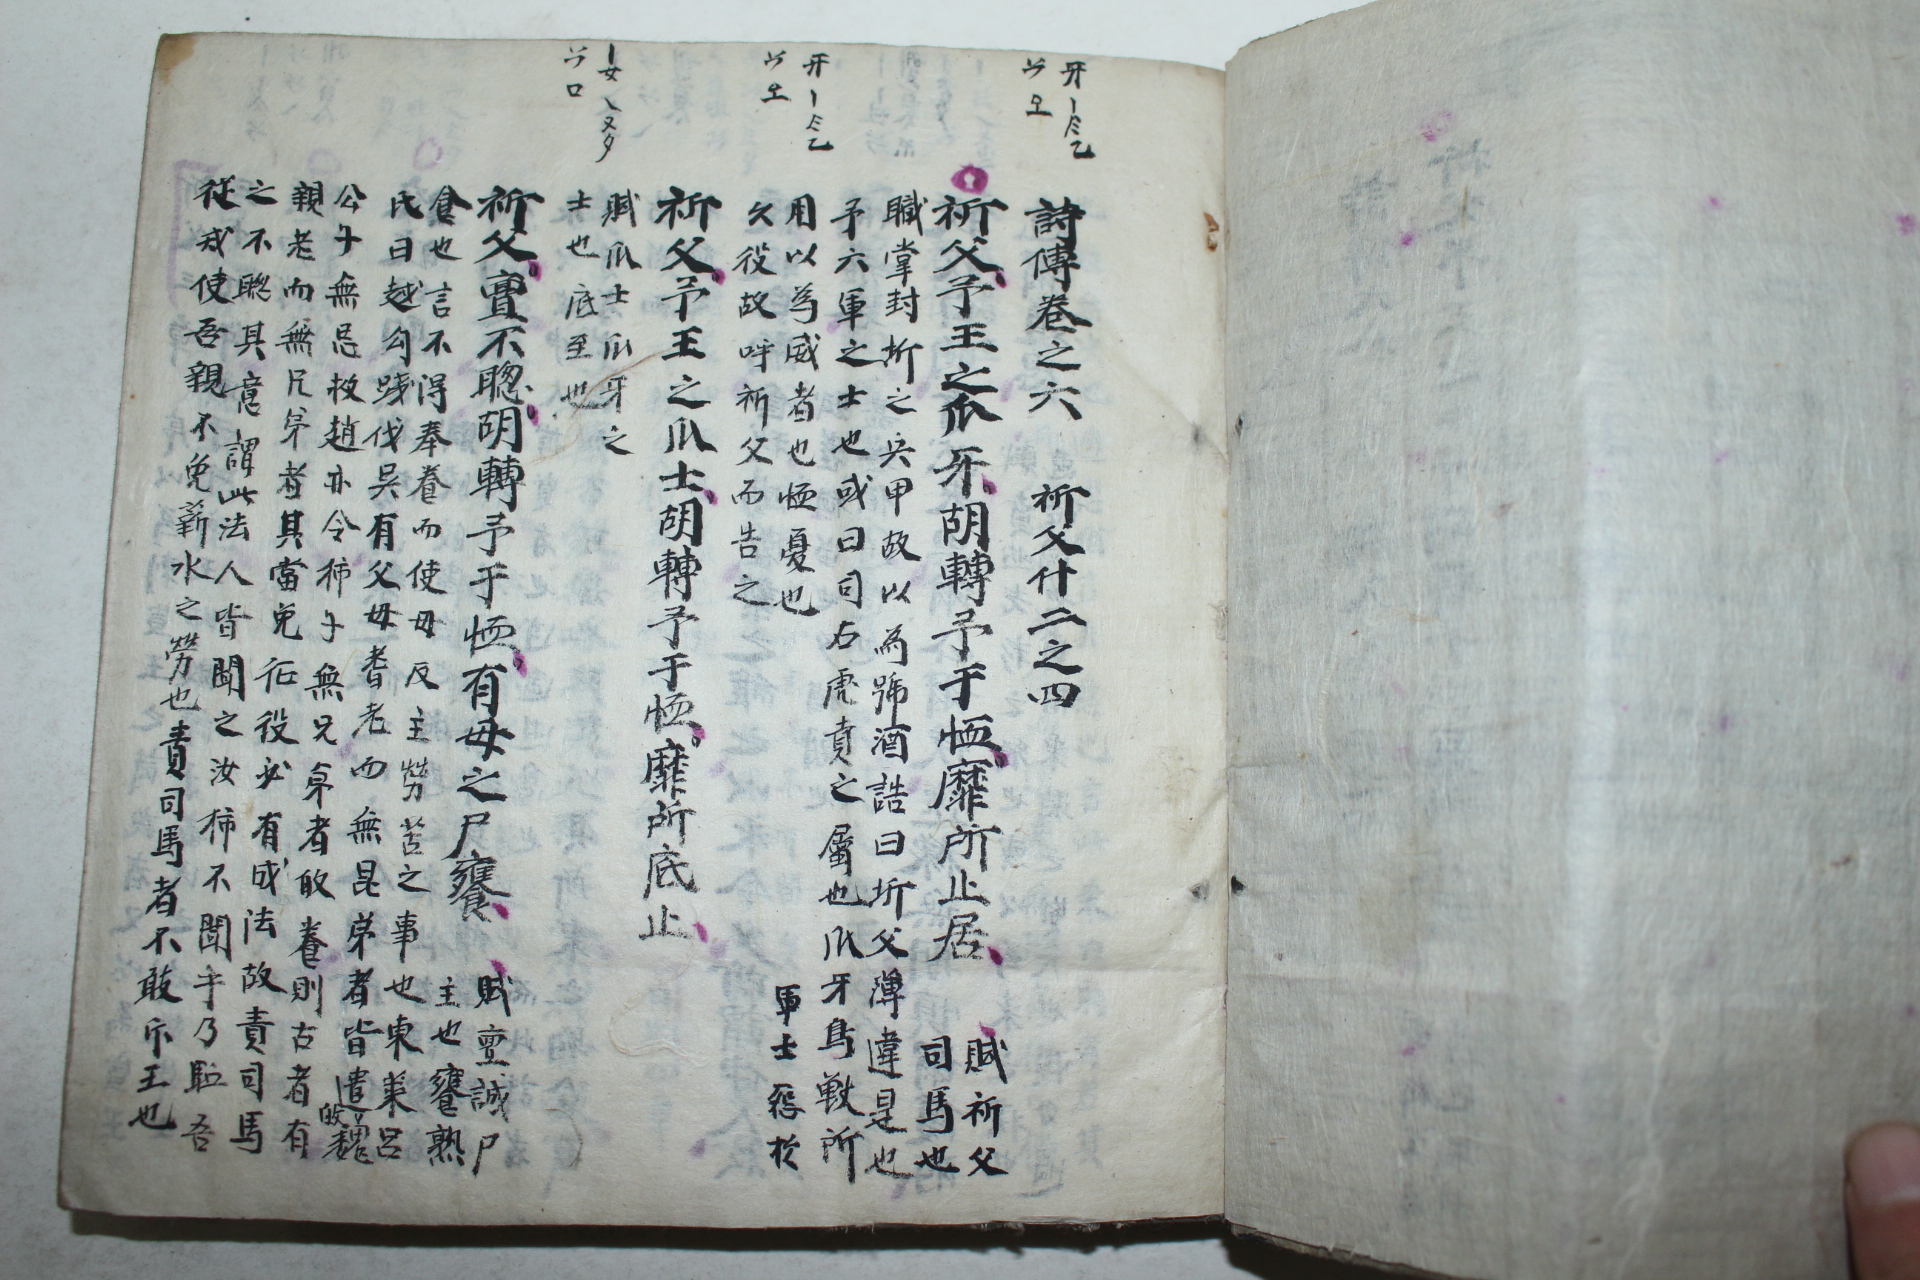 詩傳卷之六 祈父什二之四
祈父予王之爪牙胡轉予于恤靡所止居 賦祈父
司馬也
職掌封圻之兵甲故以為號酒誥曰圻父薄違是也
予六軍之士也或曰司右虎賁之屬也爪牙鳥獸所
用以為威者也恤憂也 軍士怨於
久役故呼祈父而告之
祈父予王之爪士胡轉予于恤靡所底止
賦爪士爪牙之
士也底至也
祈父亶不聰胡轉予于恤有母之尸饔 賦亶誠尸
主也饔熟
食也言不得奉養而使母反主勞苦之事也東萊呂
氏曰越勾踐伐吳有父母耆老而無昆弟者皆遣皈魏
公子無忌救趙亦令獨子無兄弟者皈養則古者有
親老而無兄弟者其當免征役必有成法故責司馬
之不聰其意謂此法人皆聞之汝獨不聞乎乃駈吾
從戎使吾親不免薪水之勞也責司馬者不敢斥王也